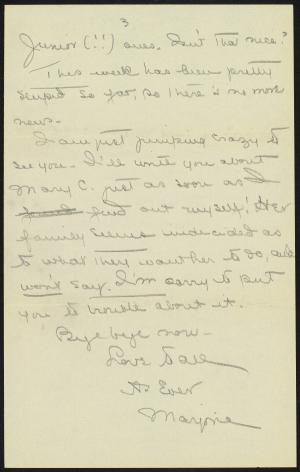 3
Junior (!!) ones. Isn't that nice?
This week has been pretty
stupid so far, so there's no more
news.
I am just jumping crazy to
see you. I'll write you about
Mary C. just as soon as I
find out myself! Her
family seems undecided as
to what they want her to do, and
won't say. I'm sorry to put
you to trouble about it.
Bye bye now -
Love to all
As Ever
Marjorie